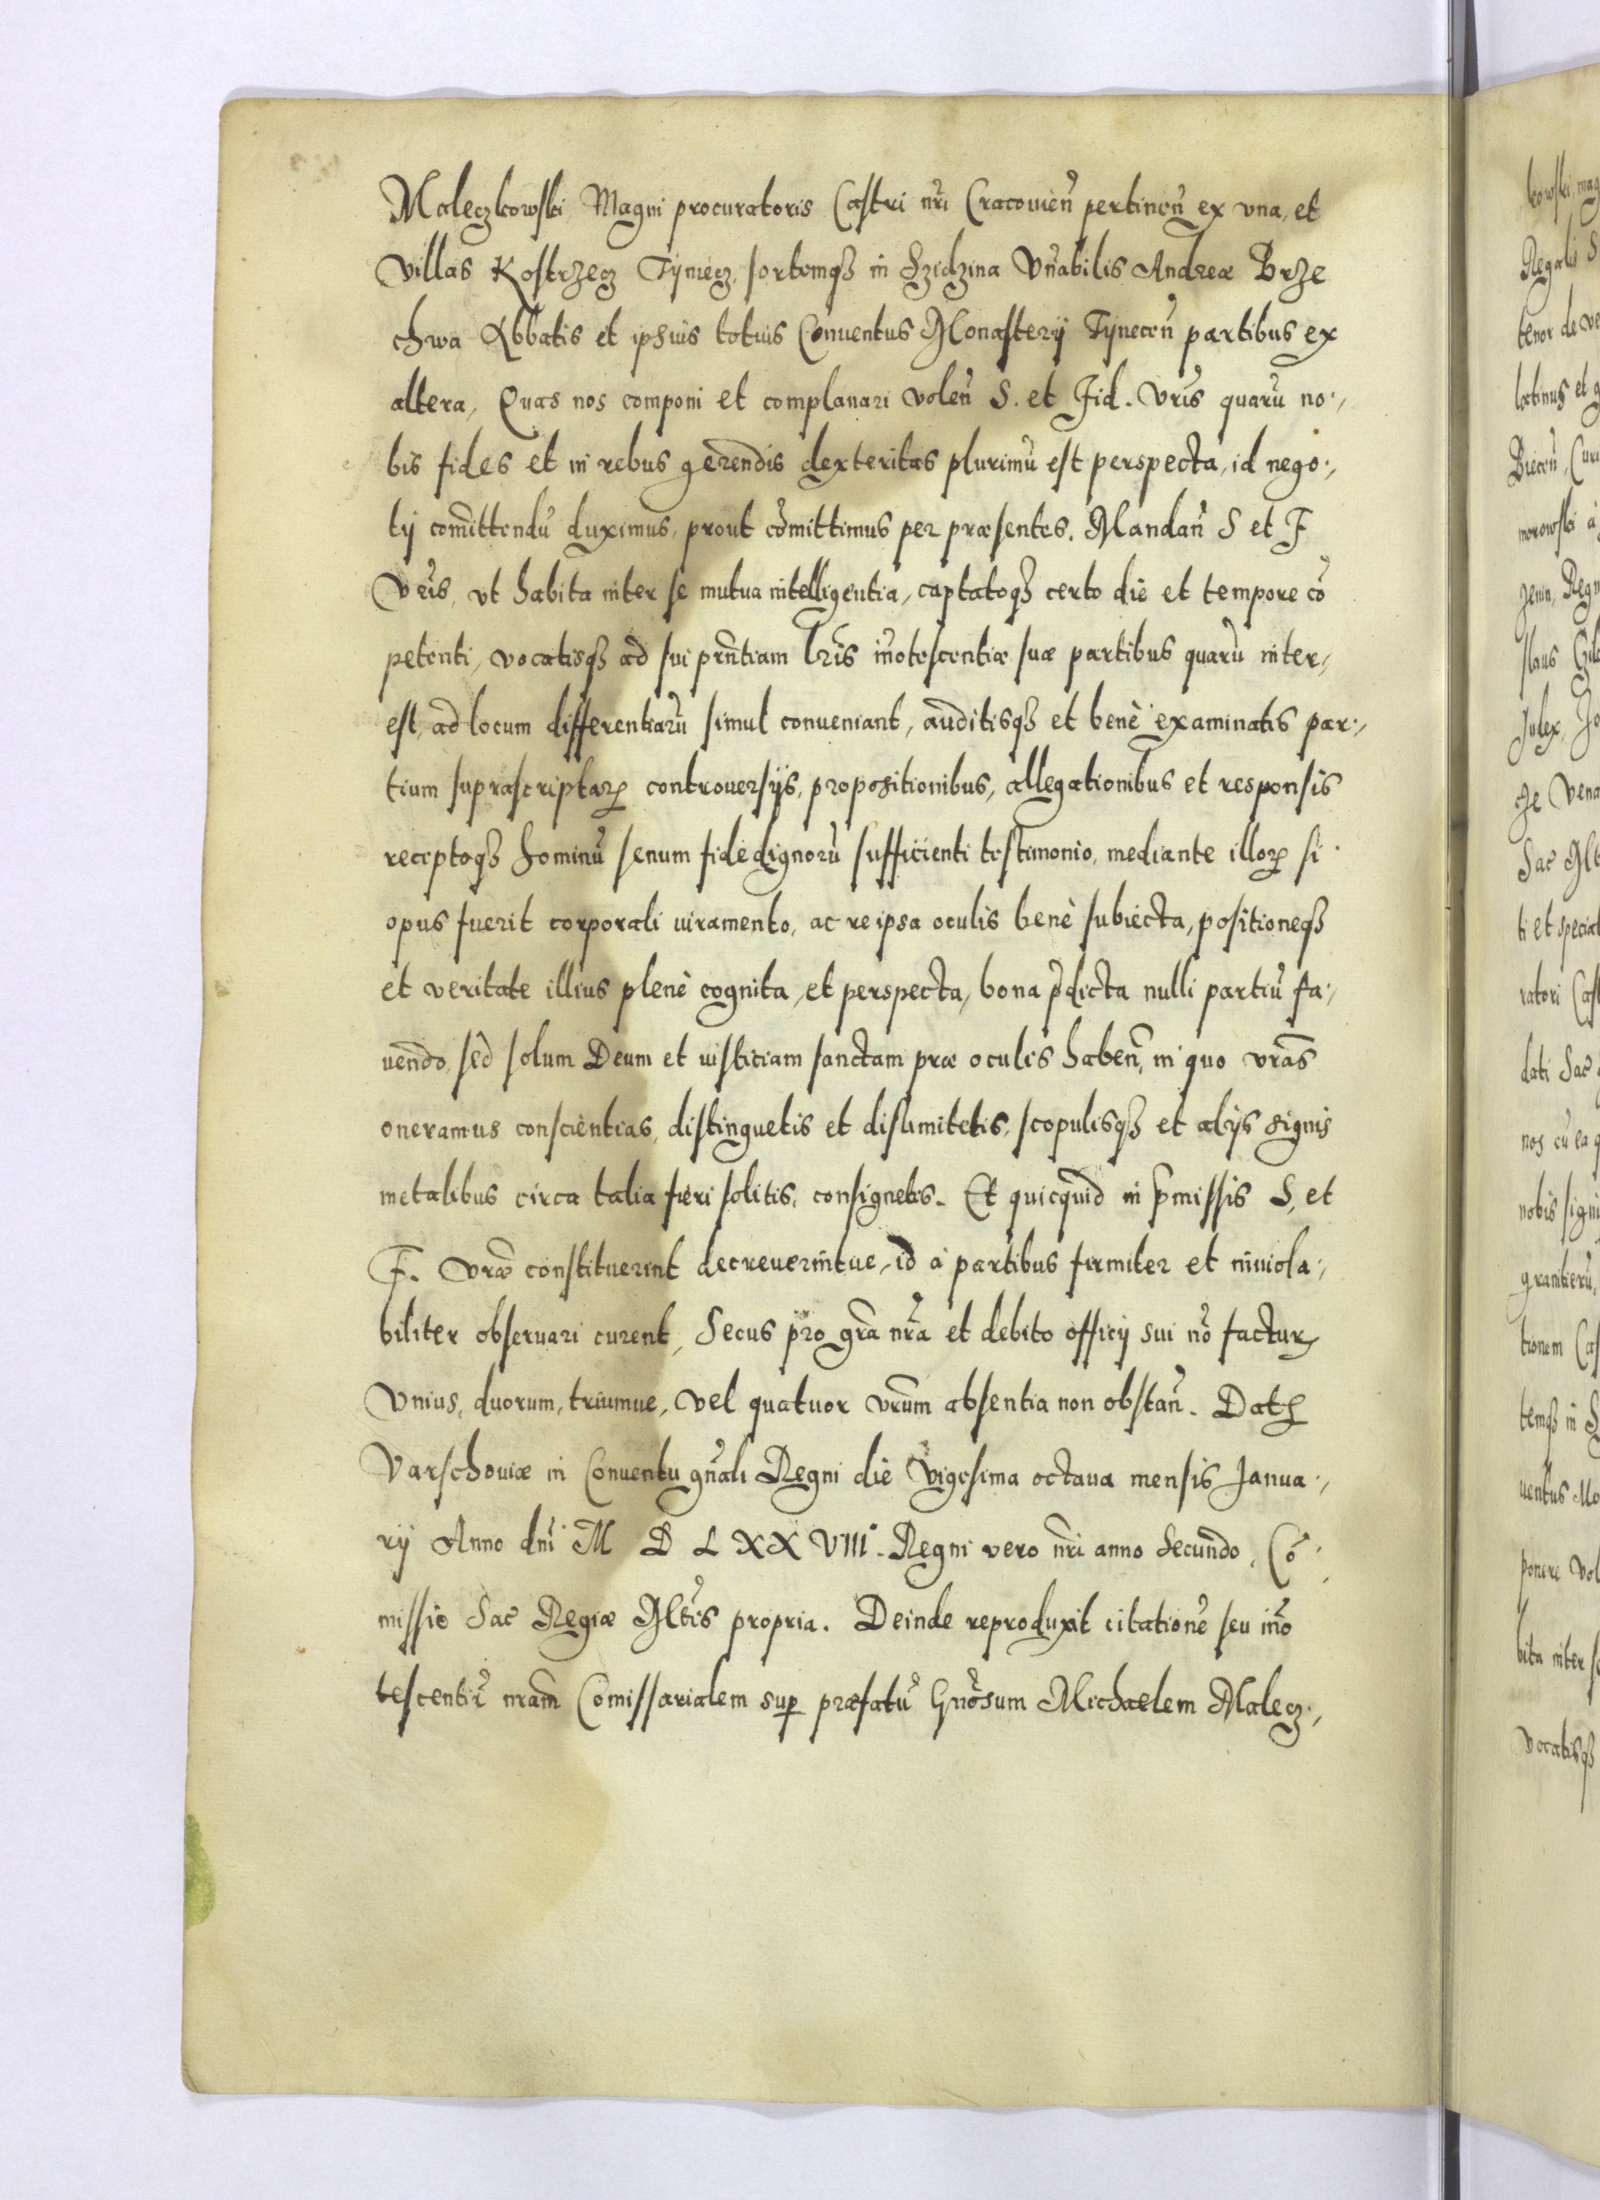 Maleczkowski, Magni procuratoris Castri nr̃i Cracouien̄ pertinen̄ ex vna, et
Villas Kostrzecz Tÿniecz, sortemqȝ in Szidzina Vn̄abilis Andreæ Brze
chwa Abbatis et ipsius totius Conuentus Monasterÿ Tÿnecen̄ partibus ex
altera, Quas nos componi et complanari volen̄ S. et Fid. Vr̃is quarū no-,
bis fides et in rebus gerendis dexteritas plurimū est perspecta, id nego-,
tÿ com̄ittendū duximus, prout cōmittimus per præsentes. Mandan̄ S et F
Vr̃is, vt habita inter se mutua intelligentia, captatoqȝ certo die et tempore cō
petenti, vocatisqȝ ad sui prn̄tiam lr̃is in̄otescentiæ suæ partibus quarū inter,
est, ad locum differentiarū simul conueniant, auditisqȝ et benè examinatis par-,
tium suprascriptaꝝ controuersÿs, propositionibus, allegationibus et responsis
receptoqȝ hominū senum fide dignorū sufficienti testimonio, mediante illoꝝ si
opus fuerit corporali iuramento, ac re ipsa oculis benè subiecta, positioneqȝ
et veritate illius plenè cognita, et perspecta, bona p̄dicta nulli partiū fa-,
uendo, sed solum Deum et iusticiam sanctam præ oculis haben̄, in quo vr̃as
oneramus conscientias, distinguetis et dislimitetis, scopulisqȝ et alÿs signis
metalibus circa talia fieri solitis, consignetis. Et quicquid in p̄missis S, et
F. vr̃æ constituerint decreuerintue, id à partibus firmiter et inuiola-,
biliter obseruari curent, Secus pro gr̃a nr̃a et debito officÿ sui nō factur̃
Vnius, duorum, triumue, vel quatuor vr̃um absentia non obstan̄. Datꝝ
Varschouiæ in Conuentu gn̄ali Regni die Vigesima octaua mensis Janua-,
rÿ Anno dn̄i M D L XX VIII. Regni vero nr̃i anno Secundo, Cō-,
missio Sac Regiæ Mt̃tis propria. Deinde reproduxit citationē seu in̄o
tescentiā nr̃am Com̄issarialem suꝑ præfatū Gn̄osum Michaelem Malecz-,